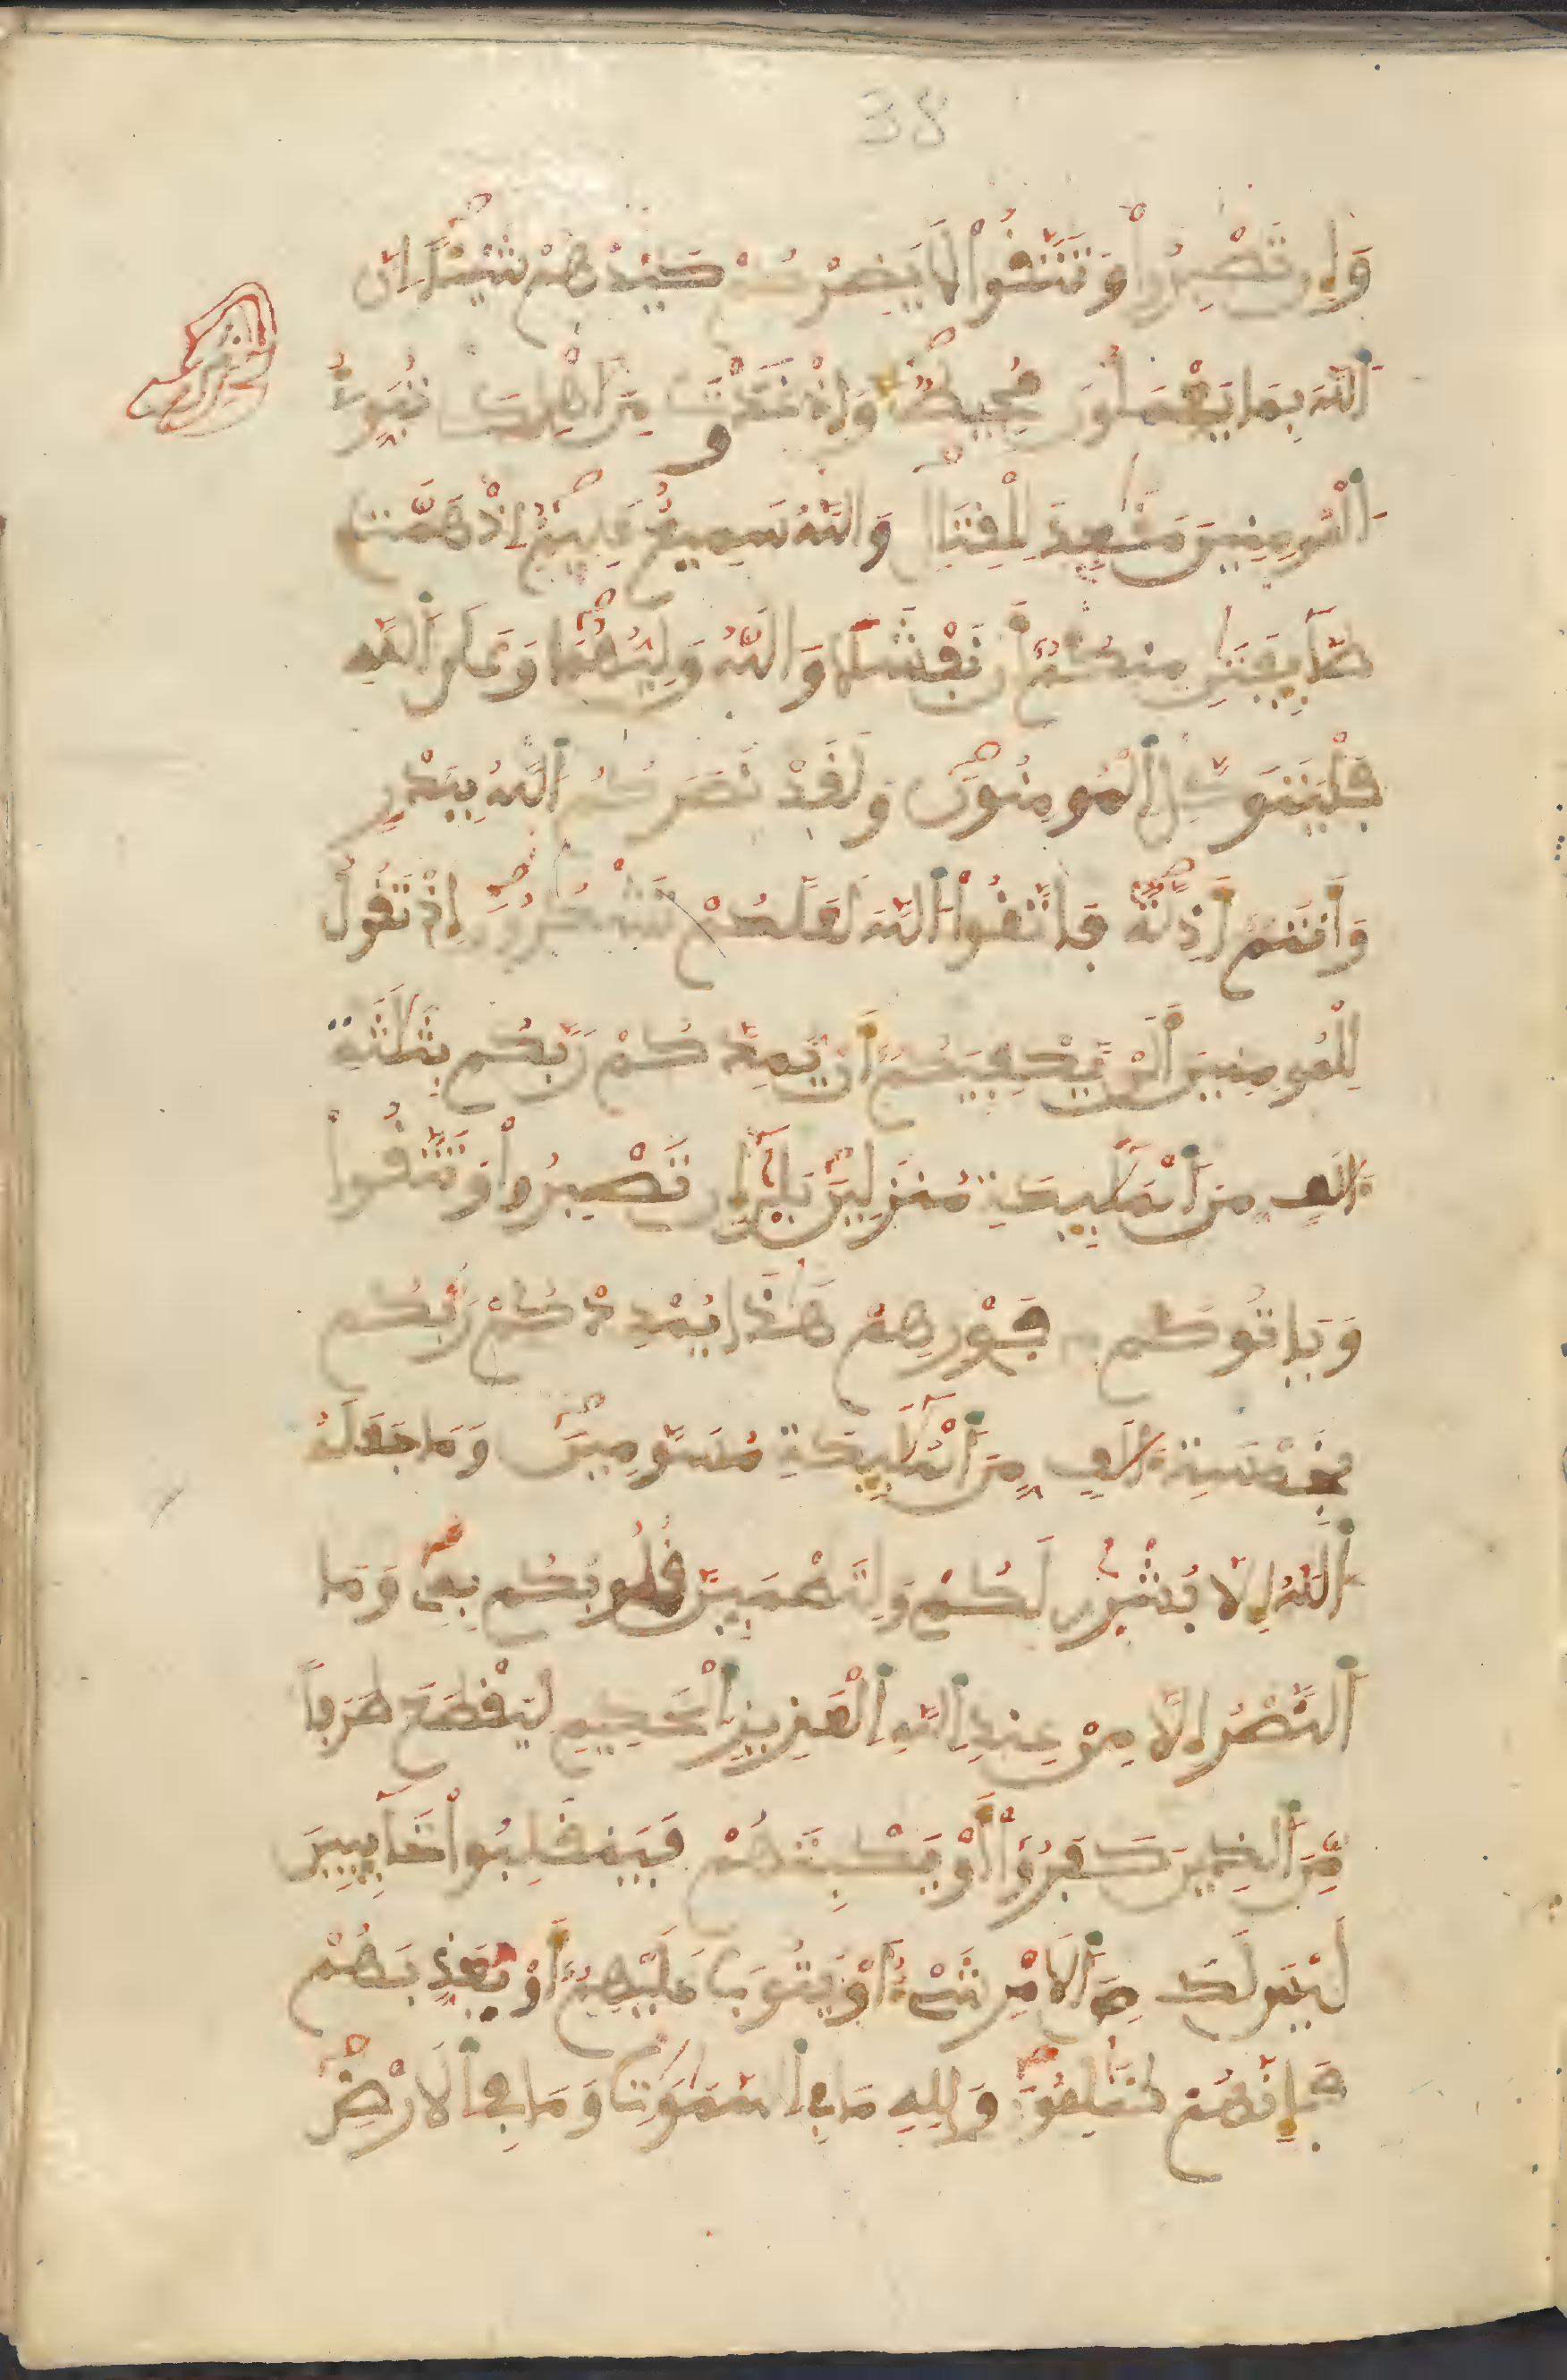 38
وَإِن تَصْبِرُواْ وَتَتَّقُواْ لَا يَضِرْكُمْ كَيْدُهُمْ شَيْـًٔا اِنَّ
اَ۬للَّهَ بِمَا يَعْمَلُونَ مُحِيطٞ وَإِذْ غَدَوْتَ مِنَ اَهْلِكَ تُبَوِّئُ
اُ۬لْمُومِنِينَ مَقَٰعِدَ لِلْقِتَالِ وَاللَّهُ سَمِيعٌ عَلِيمٌ اِذْ هَمَّت
طَّآئِفَتَٰنِ مِنكُمُۥٓ أَن تَفْشَلَا وَاللَّهُ وَلِيُّهُمَا وَعَلَى اَ۬للَّهِ
فَلْيَتَوَكَّلِ اِ۬لْمُومِنُونَ وَلَقَدْ نَصَرَكُمُ اُ۬للَّهُ بِبَدْرٖ
وَأَنتُمُۥٓ أَذِلَّةٞ فَاتَّقُواْ اُ۬للَّهَ لَعَلَّكُمْ تَشْكُرُونَ إِذْ تَقُولُ
لِلْمُومِنِينَ أَلَنْ يَّكْفِيَكُمُۥٓ أَنْ يُّمِدَّكُمْ رَبُّكُم بِثَلَٰثَةِ
ءَالَٰفٖ مِّنَ اَ۬لْمَلَٰٓئِكَةِ مُنزَلِينَ بَلَىٰٓ إِن تَصْبِرُواْ وَتَتَّقُواْ
وَيَاتُوكُم مِّن فَوْرِهِمْ هَٰذَا يُمْدِدْكُمْ رَبُّكُم
بِخَمْسَةِ ءَالَٰفٖ مِّنَ اَ۬لْمَلَٰٓئِكَةِ مُسَوَّمِينَ وَمَا جَعَلَهُ
اُ۬للَّهُ إِلَّا بُشْر۪ىٰ لَكُمْ وَلِتَطْمَئِنَّ قُلُوبُكُم بِهِۦ وَمَا
اَ۬لنَّصْرُ إِلَّا مِنْ عِندِ اِ۬للَّهِ اِ۬لْعَزِيزِ اِ۬لْحَكِيمِ لِيَقْطَعَ طَرَفاٗ
مِّنَ اَ۬لذِينَ كَفَرُوٓاْ أَوْ يَكْبِتَهُمْ فَيَنقَلِبُواْ خَآئِبِينَ
لَيْسَ لَكَ مِنَ اَ۬لَامْرِ شَےْءٌ اَوْ يَتُوبَ عَلَيْهِمُۥٓ أَوْ يُعَذِّبَهُمْ
فَإِنَّهُمْ ظَٰلِمُونَ وَلِلهِ مَا فِے اِ۬لسَّمَٰوَٰتِ وَمَا فِے اِ۬لَارْضِ